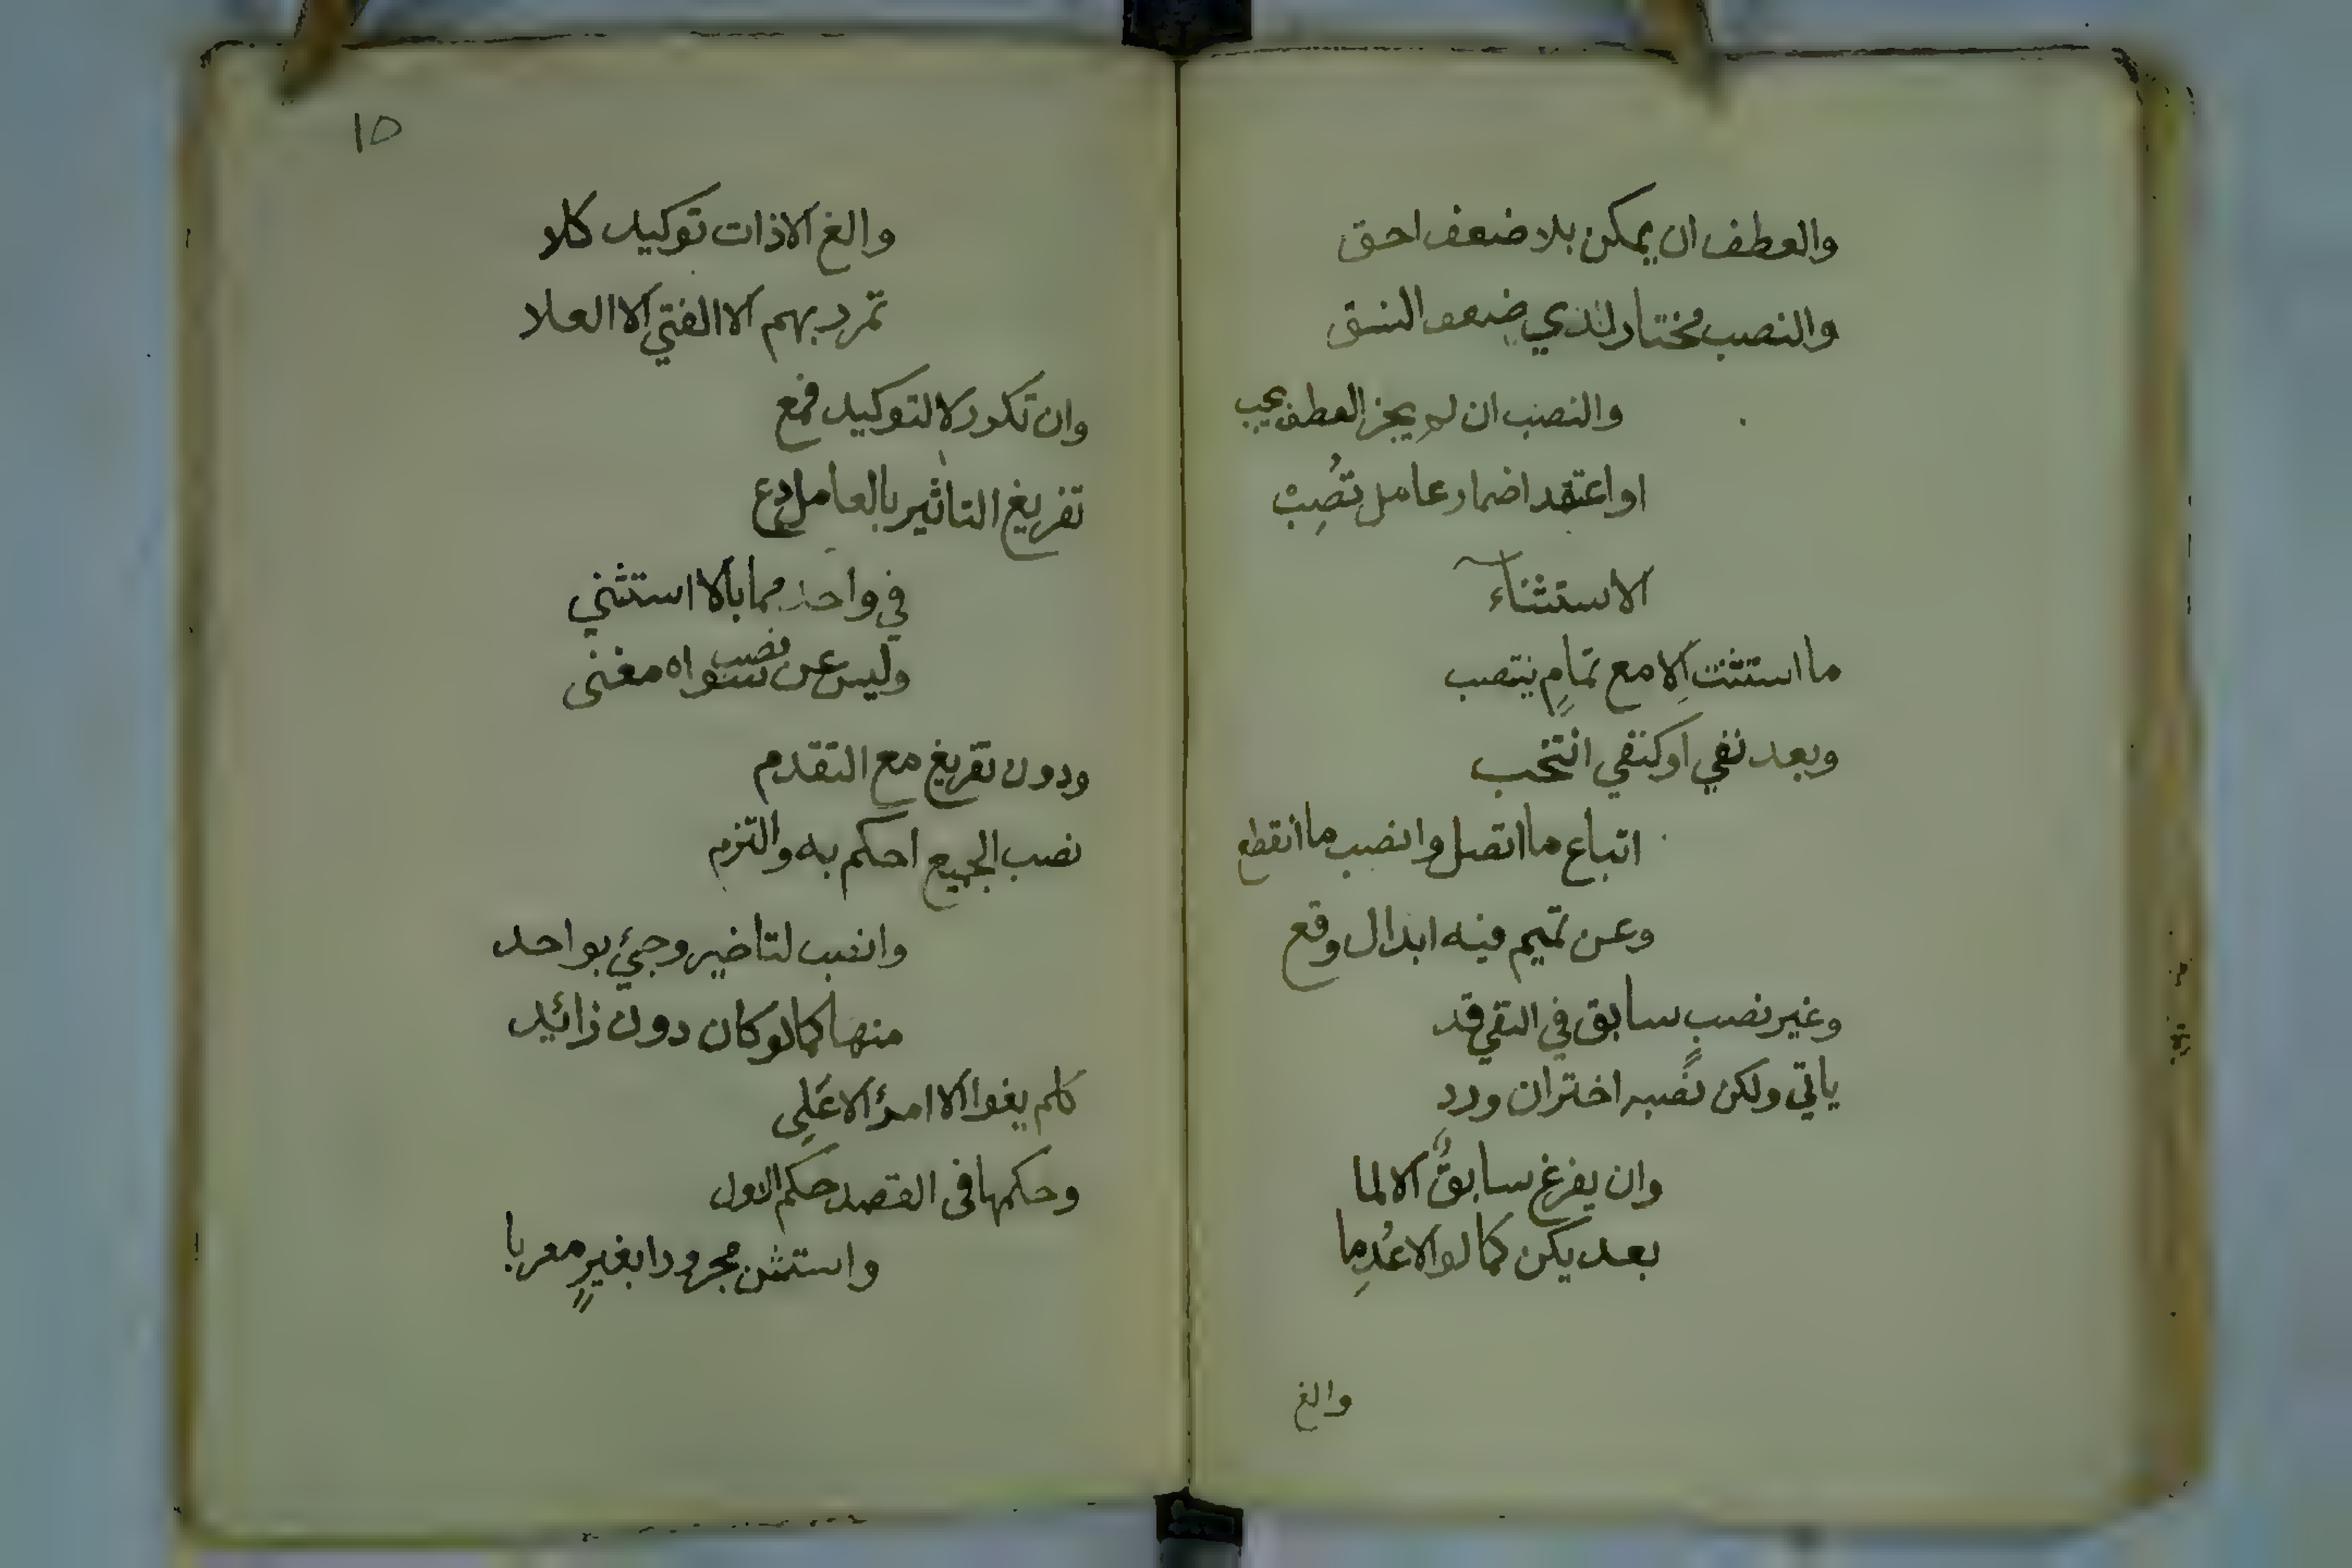 والعطف ان يمكن بلا ضعف احق
والنصب مختار لذي ضعف النسق
والنصب ان لم يجز العطف يجب
او اعتقد اضمار عامل تُصِبْ
الاستثناء
ما استثنت اِلا مع تمامٍ ينتصب
وبعد نفي اوكنفي انتخب
اتباع ما اتصل وانصب ما انقطع
وعن تميم فيه ابدال وقع
وغير نصبٍ سابق في النفي قد
ياتي ولكن نصبه اختر ان ورد
وان يفرغ سابقٌ الا لما
بعد يكن كما لو الا عُدِما
والغ
١٥
والغ الا ذات توكيد كلا
تمرر بهم الا الفتي الا العلا
وان تكرر لا لتوكيد فمع
تفريغ التاثير بالعامل دع
في واحد مما بالا استثني
وليس عن نصب سواه مغنى
ودون تفريغ مع التقدم
نصب الجميع احكم به والتزم
وانصب لتاخير وجئ بواحد
منها كما لو كان دون زائد
كلم يفوا الا امرؤ الا عَلِى
وحكمها فى القصد حكم الاول
واستثن مجرورا بغيرٍ معربا